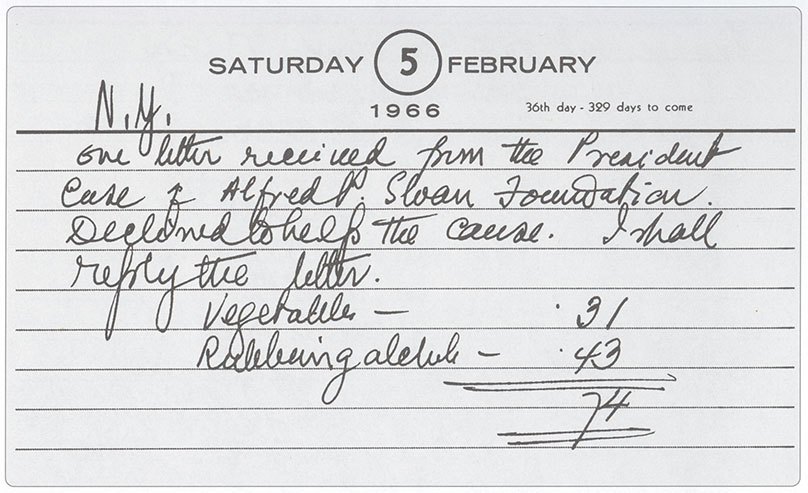 SATURDAY 5 FEBRUARY
1966
36th day - 329 days to come
N.Y.
One letter received from the President
Case of Alfred P. Sloan Foundation.
Declined to help the cause. I shall
reply the letter.
Vegetables — .31
Rubbeing alcluh — .43
74